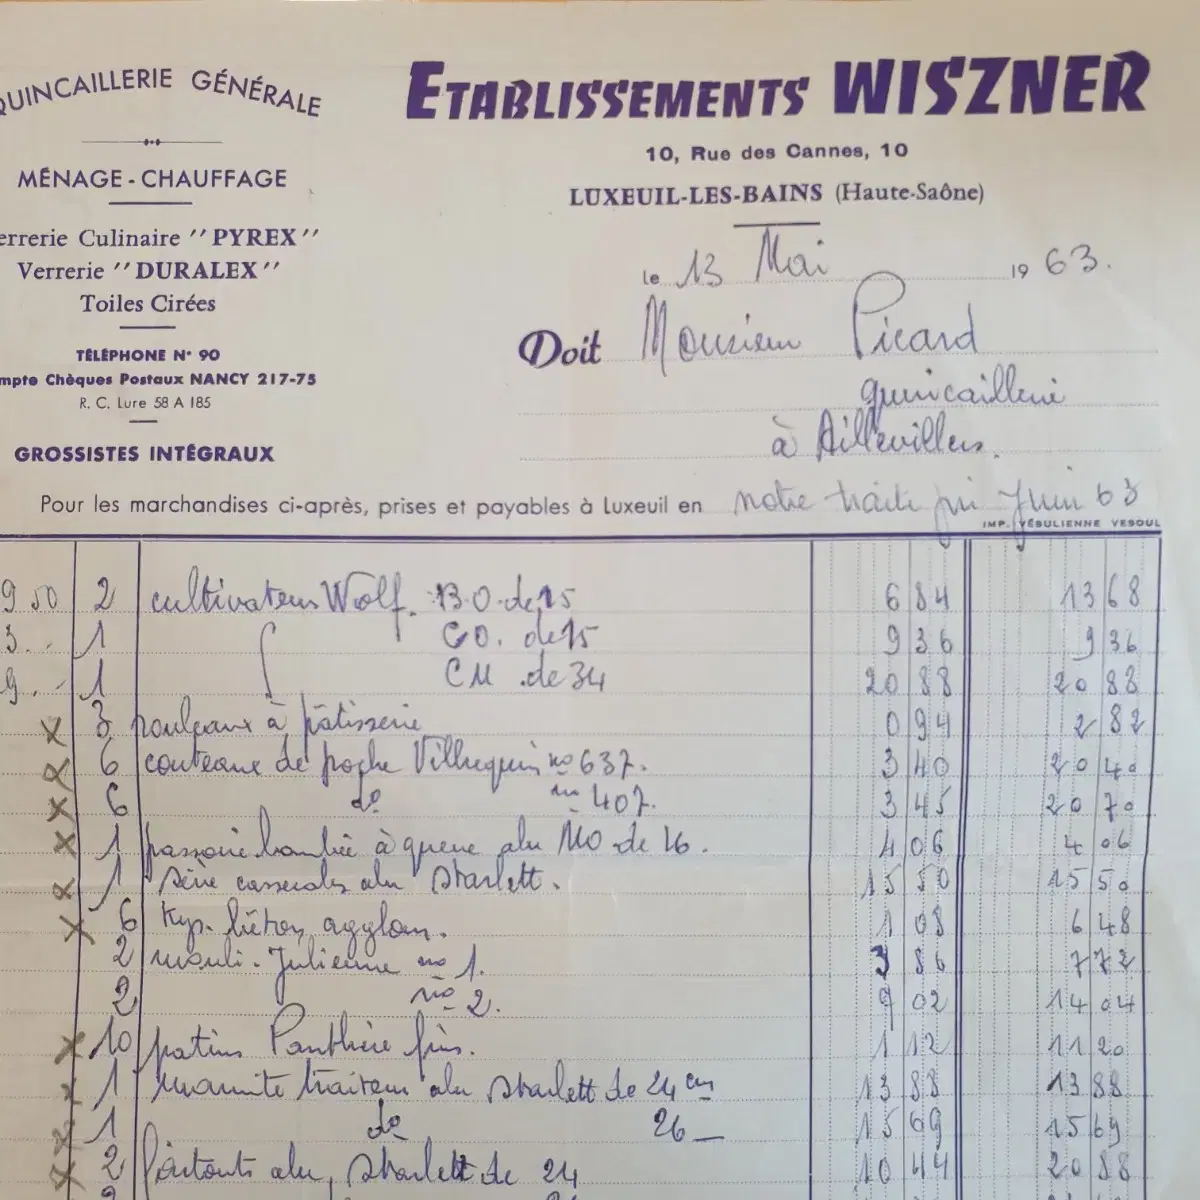 QUINCAILLERIE GÉNÉRALE
MÉNAGE - CHAUFFAGE
errerie Culinaire "PYREX"
Verrerie "DURALEX"
Toiles Cirées
TÉLÉPHONE N° 90
mpte Chèques Postaux NANCY 217-75
R. C. Lure 58 A 185
GROSSISTES INTÉGRAUX
ETABLISSEMENTS WISZNER
10, Rue des Cannes, 10
LUXEUIL-LES-BAINS (Haute-Saône)
le 13 Mai 1963.
Doit Monsieur Picard
quincaillerie
à Aillevillers.
Pour les marchandises ci-après, prises et payables à Luxeuil en notre traite fin Juin 63
IMP. VÉSULIENNE VESOUL
9 50 2 cultivateurs Wolf. BO. de 15 6 84 13 68
3. 1 CO. de 15 9 36 9 36
9. 1 CM de 34 20 88 20 88
x 3 rouleaux à pâtisserie 0 94 2 82
x 6 couteaux de poche Villequin no 637. 3 40 20 40
x 6 do no 407. 3 45 20 70
x 1 passoire bombée à queue alu MO de 16. 4 06 4 06
x 1 série casseroles alu Starlett. 15 50 15 50
x 6 liéton agglom. 1 08 6 48
2 mouli-Julienne no 1. 3 86 7 72
2 no 2. 02 14 04
x 10 patins Panthère fins. 1 12 11 20
x 1 marmite traiteur alu Starlett de 24 cm 13 88 13 88
x 1 do 26 15 69 15 69
x 2 faitouts alu Starlett de 24 10 44 20 88
26